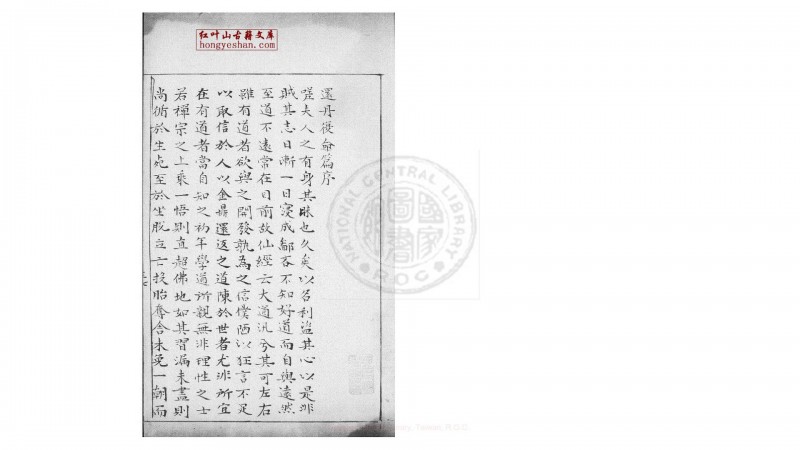 红叶山古籍文库
hongyeshan.com
還丹復命篇序
嗟夫人之有身其昧也久矣以名利盜其心以是非
賊其志日漸一日寖成鄙吝不知好道而自與遠然
至道不遠常在目前故仙經云大道汎兮其可左右
雖有道者欲與之開發孰為之信僕陋以狂言不足
以取信於人以金鼎還返之道陳於世者尤非所宜
在有道者當自知之初年學道所觀無非理性之士
若禪宗之上乘一悟則直超佛地如其習漏未盡則
尚循於生死至於坐脫立亡投胎奪舍未免一朝而
NATIONAL CENTRAL LIBRARY
國家圖書館
R.O.C.